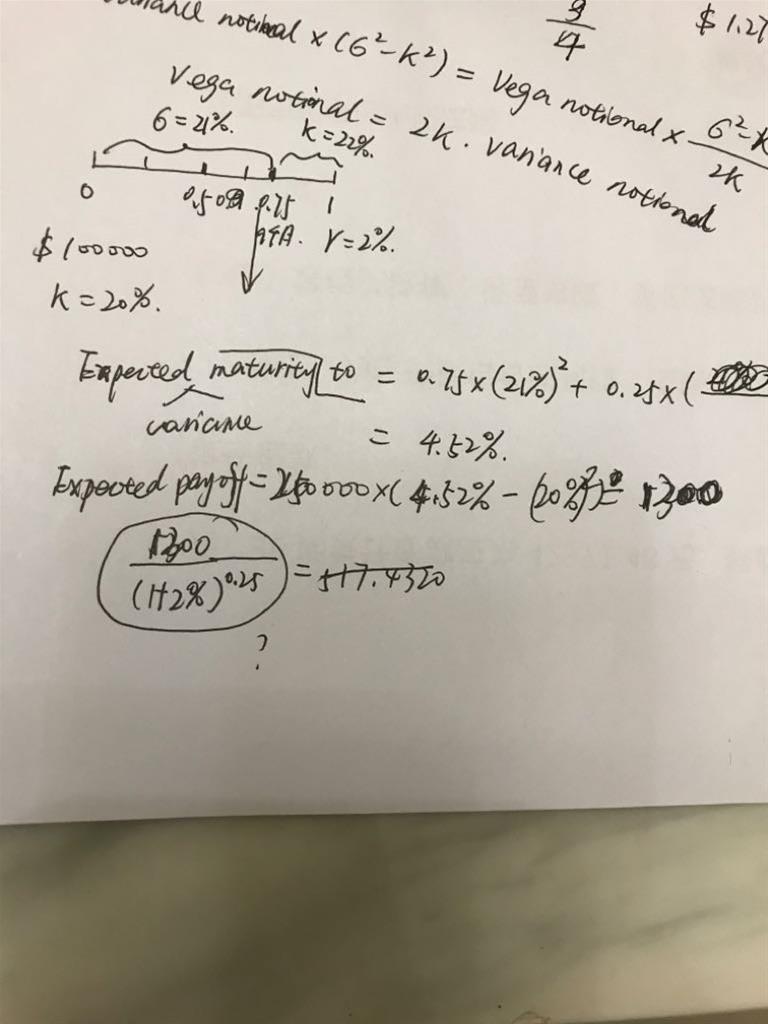 variance notional × (6²-k²) = Vega notional × (6²-k²)/2k
9/4 $1.27
Vega notional = 2k. variance notional
6=21%. k=22%.
0 0.50 0.75 1
r=2%.
$100000
k=20%.
Expected maturity to = 0.75×(21%)²+ 0.25×(
variance
= 4.52%.
Expected payoff = 250000×(4.52% - (20%)²)= 1300
1300/(1+2%)^0.25 = 517.4320
?